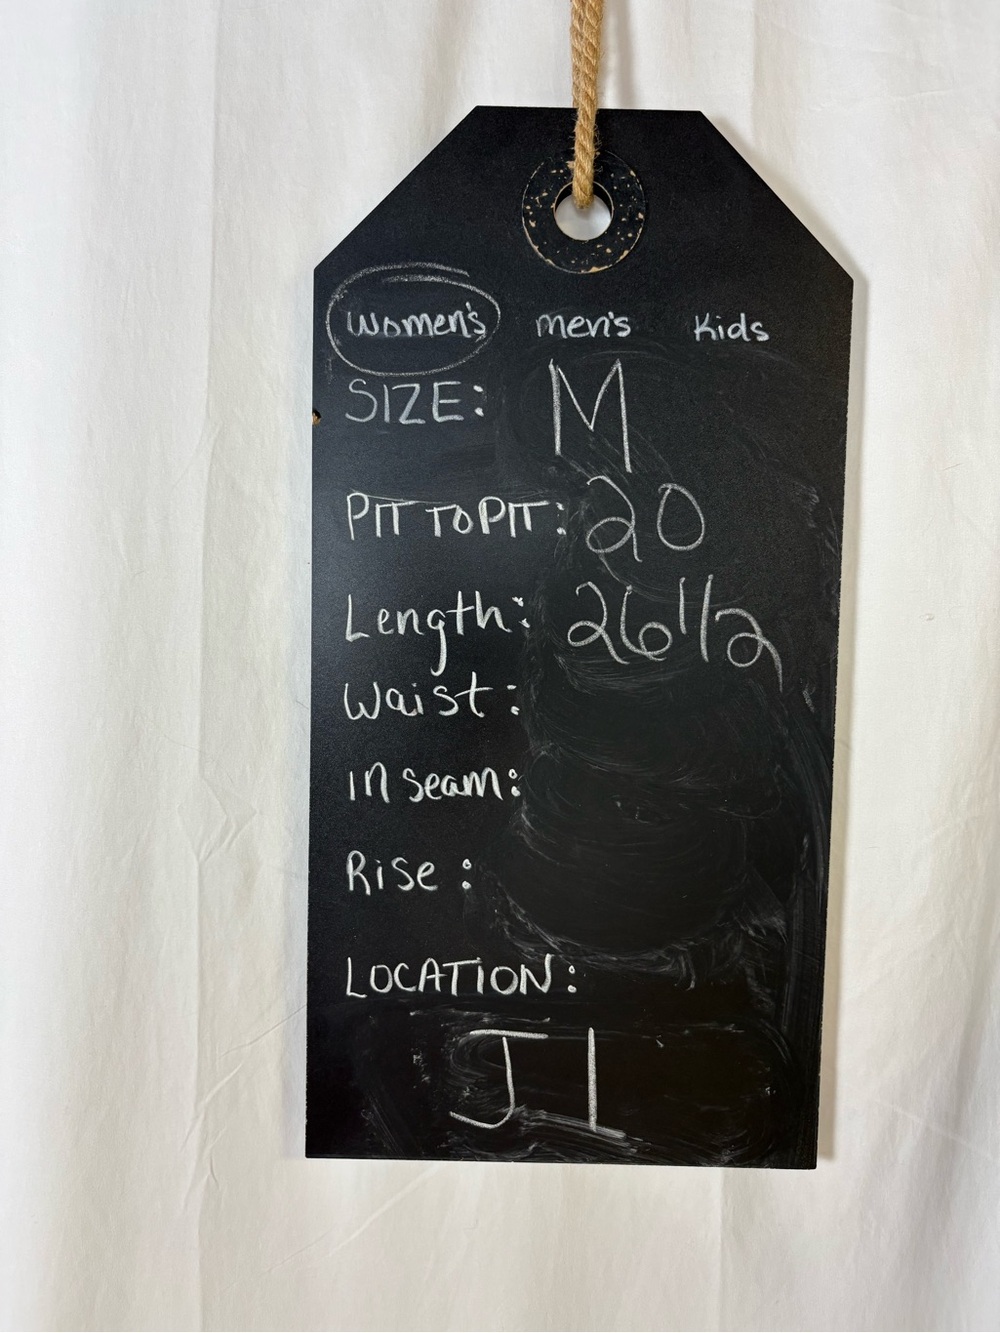 Women's men's Kids
SIZE: M
PIT TO PIT: 20
Length: 26 1/2
Waist:
in seam:
Rise:
LOCATION:
J1